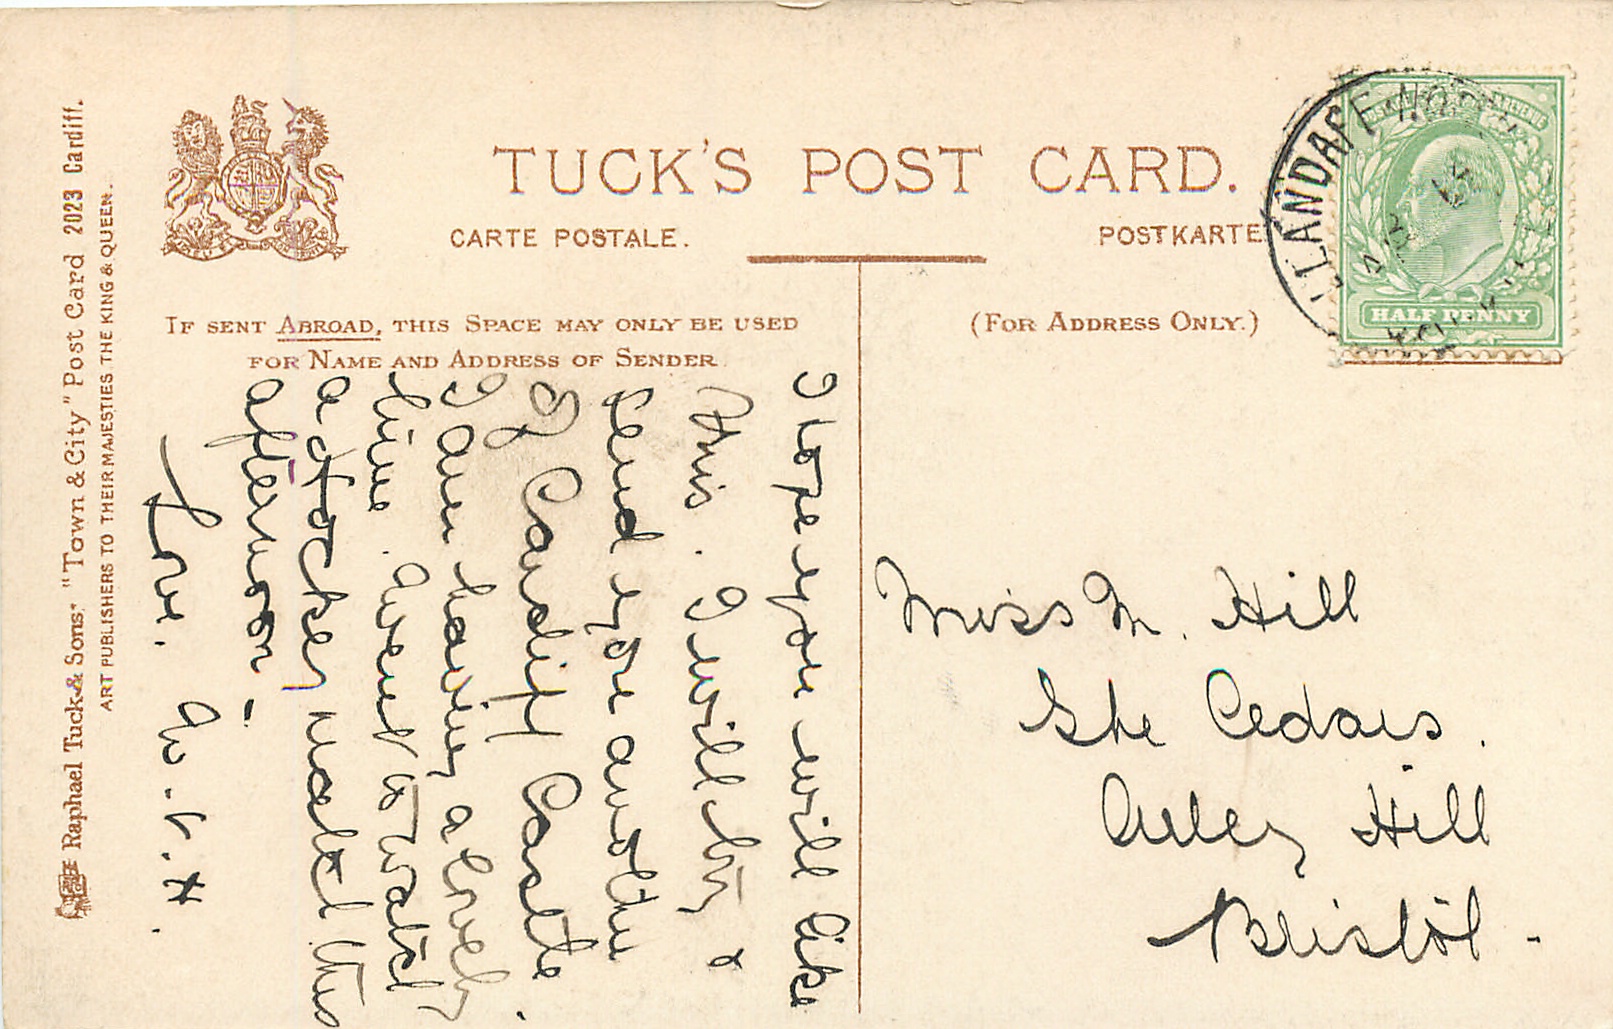 TUCK'S POST CARD.
CARTE POSTALE.
POSTKARTE.
IF SENT ABROAD, THIS SPACE MAY ONLY BE USED
FOR NAME AND ADDRESS OF SENDER.
(FOR ADDRESS ONLY.)
LLANDAFF NORTH
HALF PENNY
I hope you will like
this. I will try &
send you another
of Cardiff Castle.
I am having a lovely
time. Went to watch
a hockey match this
afternoon.
Love. W.V.H.
Miss M. Hill
The Cedars.
Arley Hill
Bristol.
Raphael Tuck & Sons' "Town & City" Post Card 2023 Cardiff.
ART PUBLISHERS TO THEIR MAJESTIES THE KING & QUEEN.